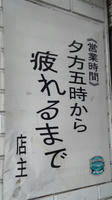 《営業時間》
夕方五時から
疲れるまで
店主